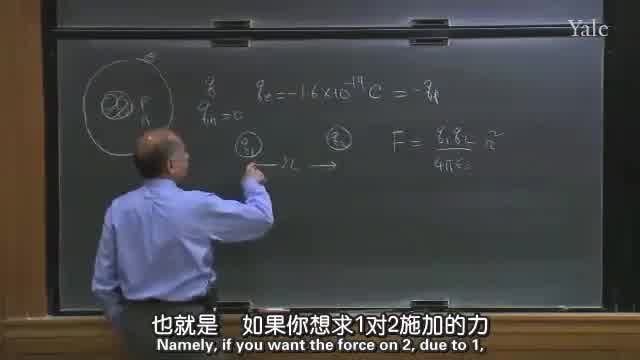 Yale
q
q_e = -1.6 × 10^-19 C = -q_p
q_n = 0
q_1
q_2
r
F = q_1 q_2 / 4πε_0
也就是 如果你想求1对2施加的力
Namely, if you want the force on 2, due to 1,